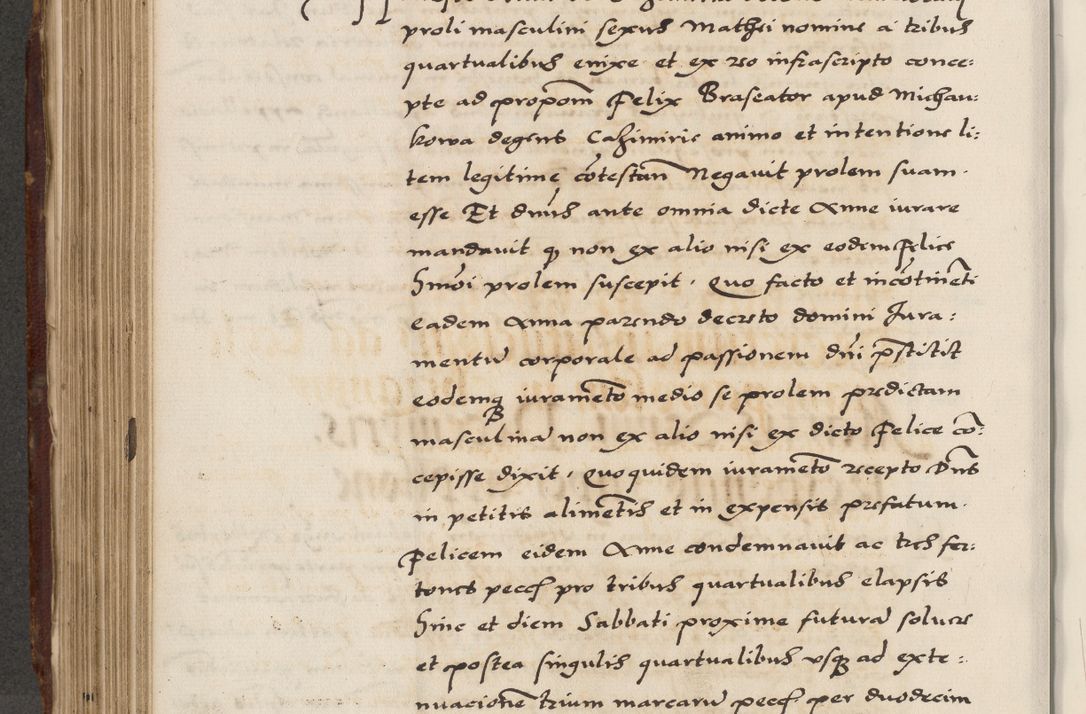 proli masculini sexus Mathei nomine a tribus
quartualibus enixe et ex reo infrascripto conce:
pte ad propom̄ Felix Braseator apud Michau:
kowa degens Cazimirie animo et intentione li:
tem legitime cōtestan̄ Negavit prolem suam.
esse Et dn̄us ante omnia dicte Anne iurare
mandavit q̨ non ex alio nisi ex eodem Felice
Smōi prolem suscepit. Quo facto et incōtinēti
eadem Anna parendo decreto domini Jura:
mentū corporale ad passionem dn̄i p̄stitit
eodemq̨ iuramēto medio se prolem predictam
masculinā non ex alio nisi ex dicto Felice cō:
cepisse dixit. Quoquidem iuramēto recepto Dn̄s
in petitis alimētis et in expensis prefatum.
Felicem eidem Anne condemnavit ac tres fer:
tones pecc̄ pro tribus quartualibus elapsis
Hinc et diem Sabbati proxime futurā solvere
et postea singulis quartualibus vsq̨ ad exte:
nuacionē trium marcarū pecc̄ per duodecim